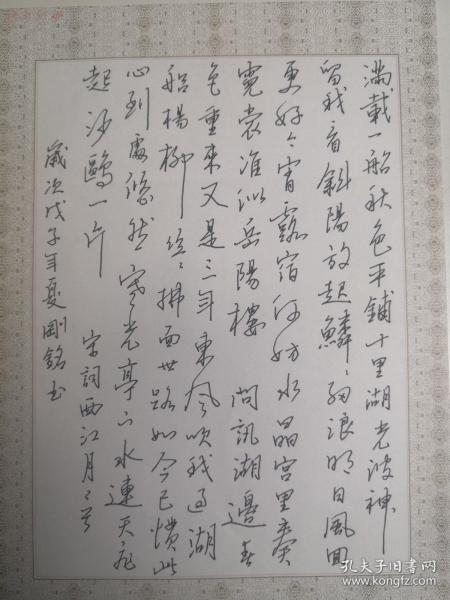 滿載一船秋色平鋪十里湖光波神
留我看斜陽放起鱗〻細浪明日風回
更好今宵露宿何妨水晶宮里奏
霓裳准拟岳陽樓 問訊湖邊春
色重來又是三年東風吹我過湖
船楊柳丝〻拂面世路如今已慣此
心到處悠然寒光亭下水連天飛
起沙鷗一片 宋詞西江月二首
歲次戊子年夏剛銘书
孔夫子旧书网